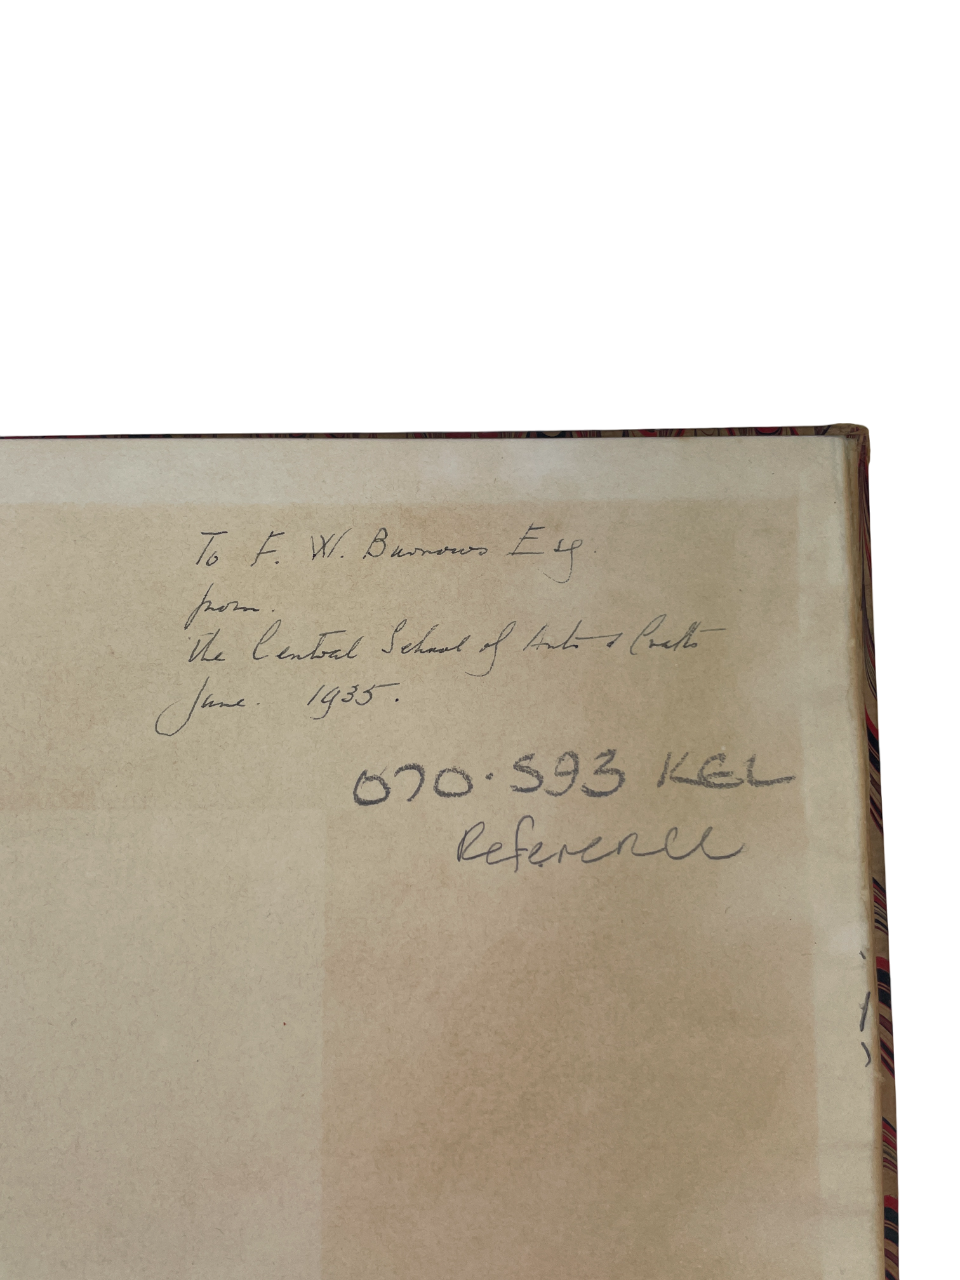 To F. W. Burrows Esq.
from.
the Central School of Arts & Crafts
June. 1935.
070.593 KEL
Reference